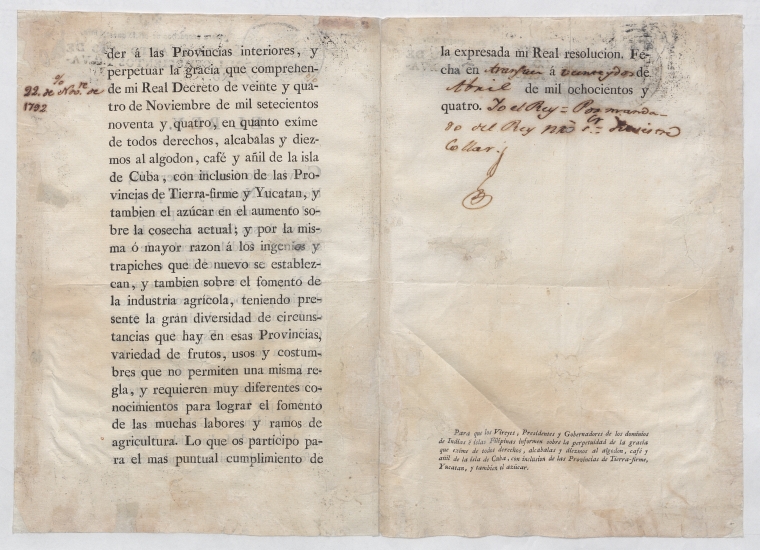 der á las Provincias interiores, y
perpetuar la gracia que comprehen-
de mi Real Decreto de veinte y qua-
tro de Noviembre de mil setecientos
noventa y quatro, en quanto exime
de todos derechos, alcabalas y diez-
mos al algodon, café y añil de la isla
de Cuba, con inclusion de las Pro-
vincias de Tierra-firme y Yucatan, y
tambien el azúcar en el aumento so-
bre la cosecha actual; y por la mis-
ma ó mayor razon á los ingenios y
trapiches que de nuevo se establez-
can, y tambien sobre el fomento de
la industria agrícola, teniendo pre-
sente la gran diversidad de circuns-
tancias que hay en esas Provincias,
variedad de frutos, usos y costum-
bres que no permiten una misma re-
gla, y requieren muy diferentes co-
nocimientos para lograr el fomento
de las muchas labores y ramos de
agricultura. Lo que os participo pa-
ra el mas puntual cumplimiento de
22. de Nov.re de
1792
la expresada mi Real resolucion. Fe-
cha en Aranjuez á veinte y dos de
Abril de mil ochocientos y
quatro. Yo el Rey = Por manda-
do del Rey
Collar.
Para que los Vireyes, Presidentes y Gobernadores de los dominios
de Indias é islas Filipinas informen sobre la perpetuidad de la gracia
que exime de todos derechos, alcabalas y diezmos al algodon, café y
añil de la isla de Cuba, con inclusion de las Provincias de Tierra-firme,
Yucatan, y tambien el azúcar.